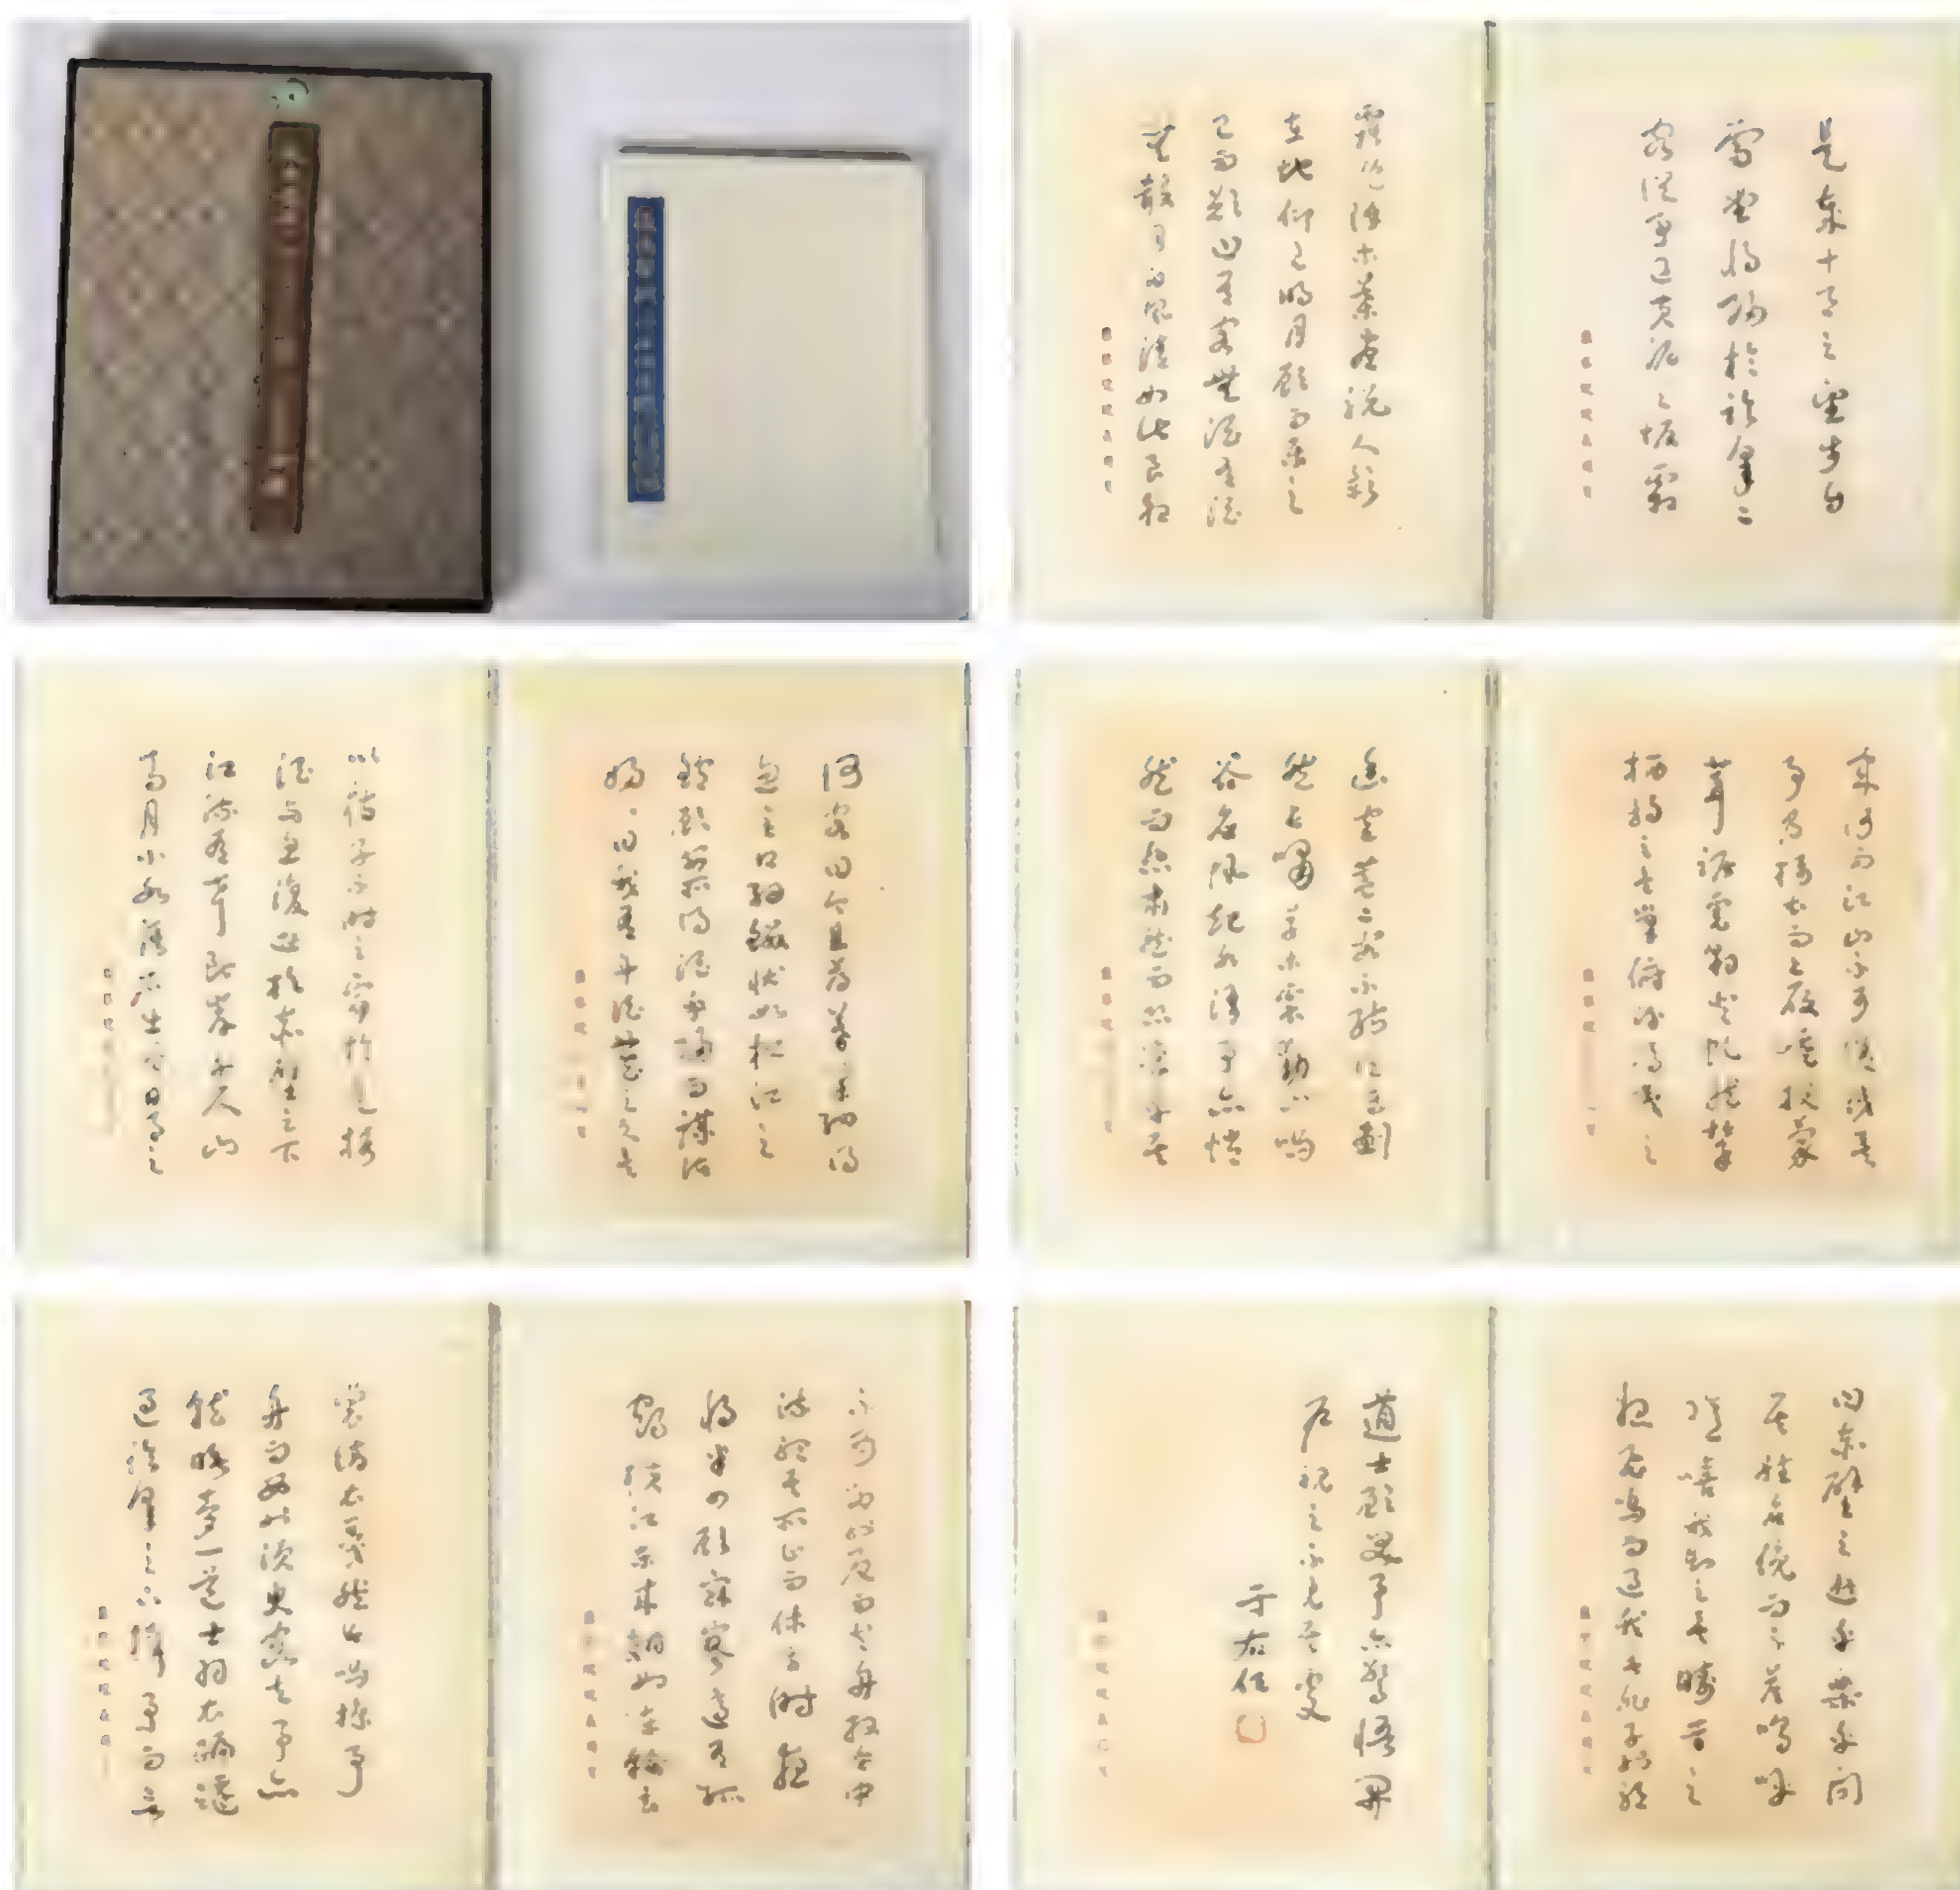 是歲十月之望步自
雪堂將歸於臨皋二
客從予過黃泥之坂霜
露既降木葉盡脫人影
在地仰見明月顧而樂之
已而歎曰有客無酒有酒
無殽月白風清如此良夜
何客曰今者薄暮舉網得
魚巨口細鱗狀似松江之
鱸顧安所得酒乎歸而謀諸
婦婦曰我有斗酒藏之久矣
以待子不時之需於是攜
酒與魚復遊於赤壁之下
江流有聲斷岸千尺山
高月小水落石出曾日月之
幾何而江山不可復識矣
予乃攝衣而上履巉巖披蒙
茸踞虎豹登虬龍攀
栖鶻之危巢俯馮夷之
幽宮蓋二客不能從焉劃
然長嘯草木震動山鳴
谷應風起水湧予亦悄
然而悲肅然而恐凜乎其
不可留也反而登舟放乎中
流聽其所止而休焉時夜
將半四顧寂寥適有孤
鶴橫江東來翅如車輪玄
裳縞衣戛然長鳴掠予
舟而西也須臾客去予亦
就睡夢一道士羽衣蹁躚
過臨皋之下揖予而言
曰赤壁之遊樂乎問
其姓名俛而不答嗚呼
噫嘻我知之矣疇昔之
夜飛鳴而過我者非子也耶
道士顧笑予亦驚悟開
戶視之不見其處
于右任